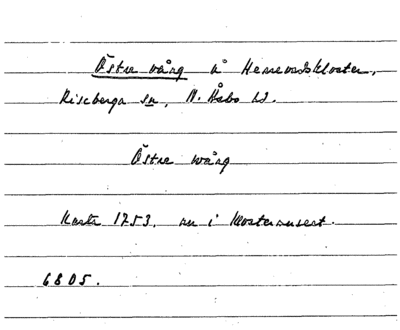 Östra vång å Herrevadskloster,
Riseberga sn, N. Åsbo hd.
Östre wång
Karta 1753. nu i klostermuseet.
6805.